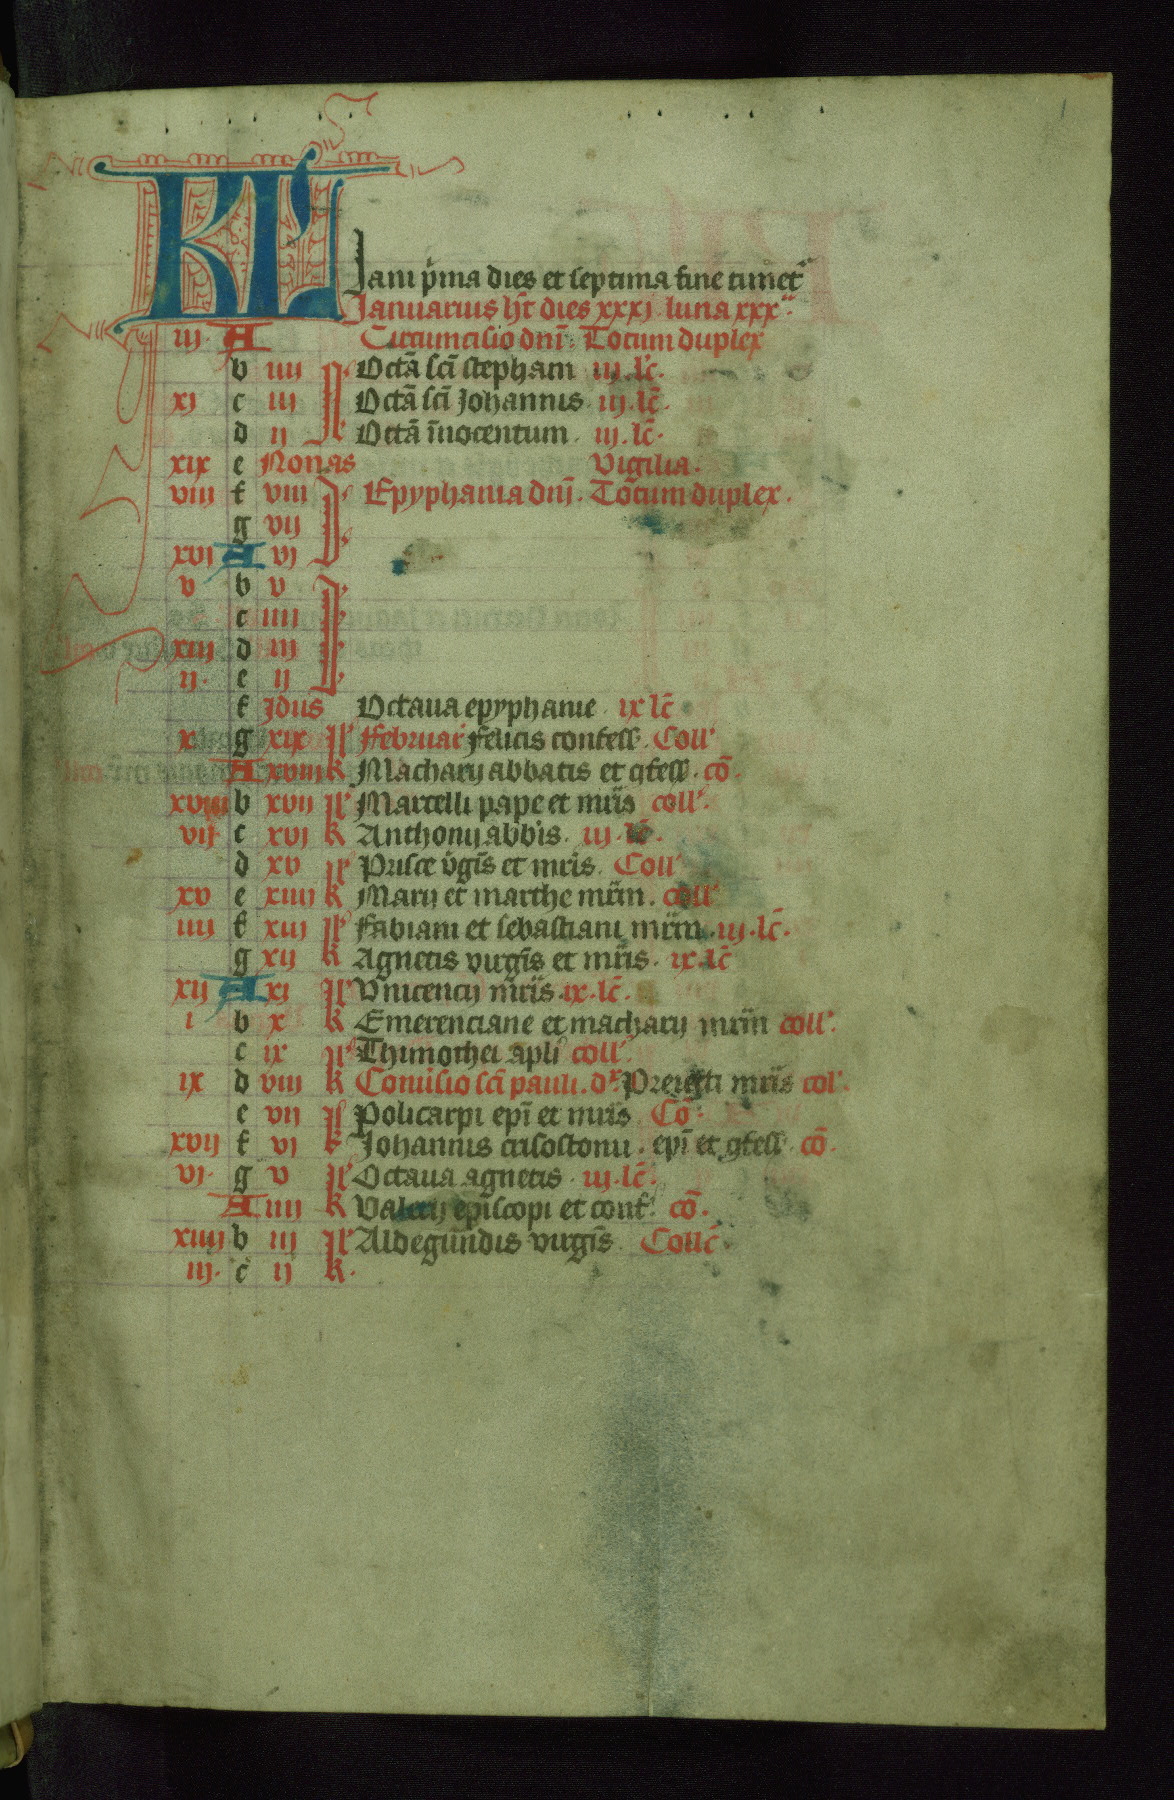 KL Jani p̄ma dies et septima fine timet᷑
Januarius h̄t dies xxxj luna xxx
iij A Circumcisio dn̄i. Totum duplex
b iiij N Octā sc̄i stephani iij lc̄.
xj c iij Octā sc̄i Johannis iij lc̄.
d ij N Octā īnocentum. iij. lc̄.
xix e Nonas Vigilia.
viij f viij Epyphania dn̄i. Totum duplex.
g vij
xvj A vj
v b v
c iiij
xiij d iij
ij. e ij
f Jdus Octaua epyphanie ix lc̄
x g xix Februar felicis confess. Coll'
A xviij k Macharij abbatis et ꝯfess. cō.
xviij b xvij Marcelli pape et mr̄is coll'.
vij c xvj k Anthonij abbīs. iij. lc̄.
d xv Prisce v̄gīs et mr̄is. Coll'
xv e xiiij k Marij et marthe mr̄m. coll'
iiij f xiij Fabiani et sebastiani mr̄m. iij. lc̄.
g xij k Agnetis virgīs et mr̄is. ix. lc̄
xij A xj Vnicencij mr̄is. ix. lc̄.
i b x k Emerenciane et macharij mr̄m coll'.
c ix Thimothei apl̄i coll'.
ix d viij k Conu̅sio sc̄i pauli. Preiecti mr̄is col'.
e vij Policarpi ep̄i et mr̄is Cō.
xvij f vj k Johannis crisostomi. ep̄i et ꝯfess. cō.
vj. g v Octaua agnetis. iij. lc̄.
A iiij k Valerij episcopi et conf. cō.
xiiij b iij Aldegundis virgīs Collc̄.
iij. c ij k.